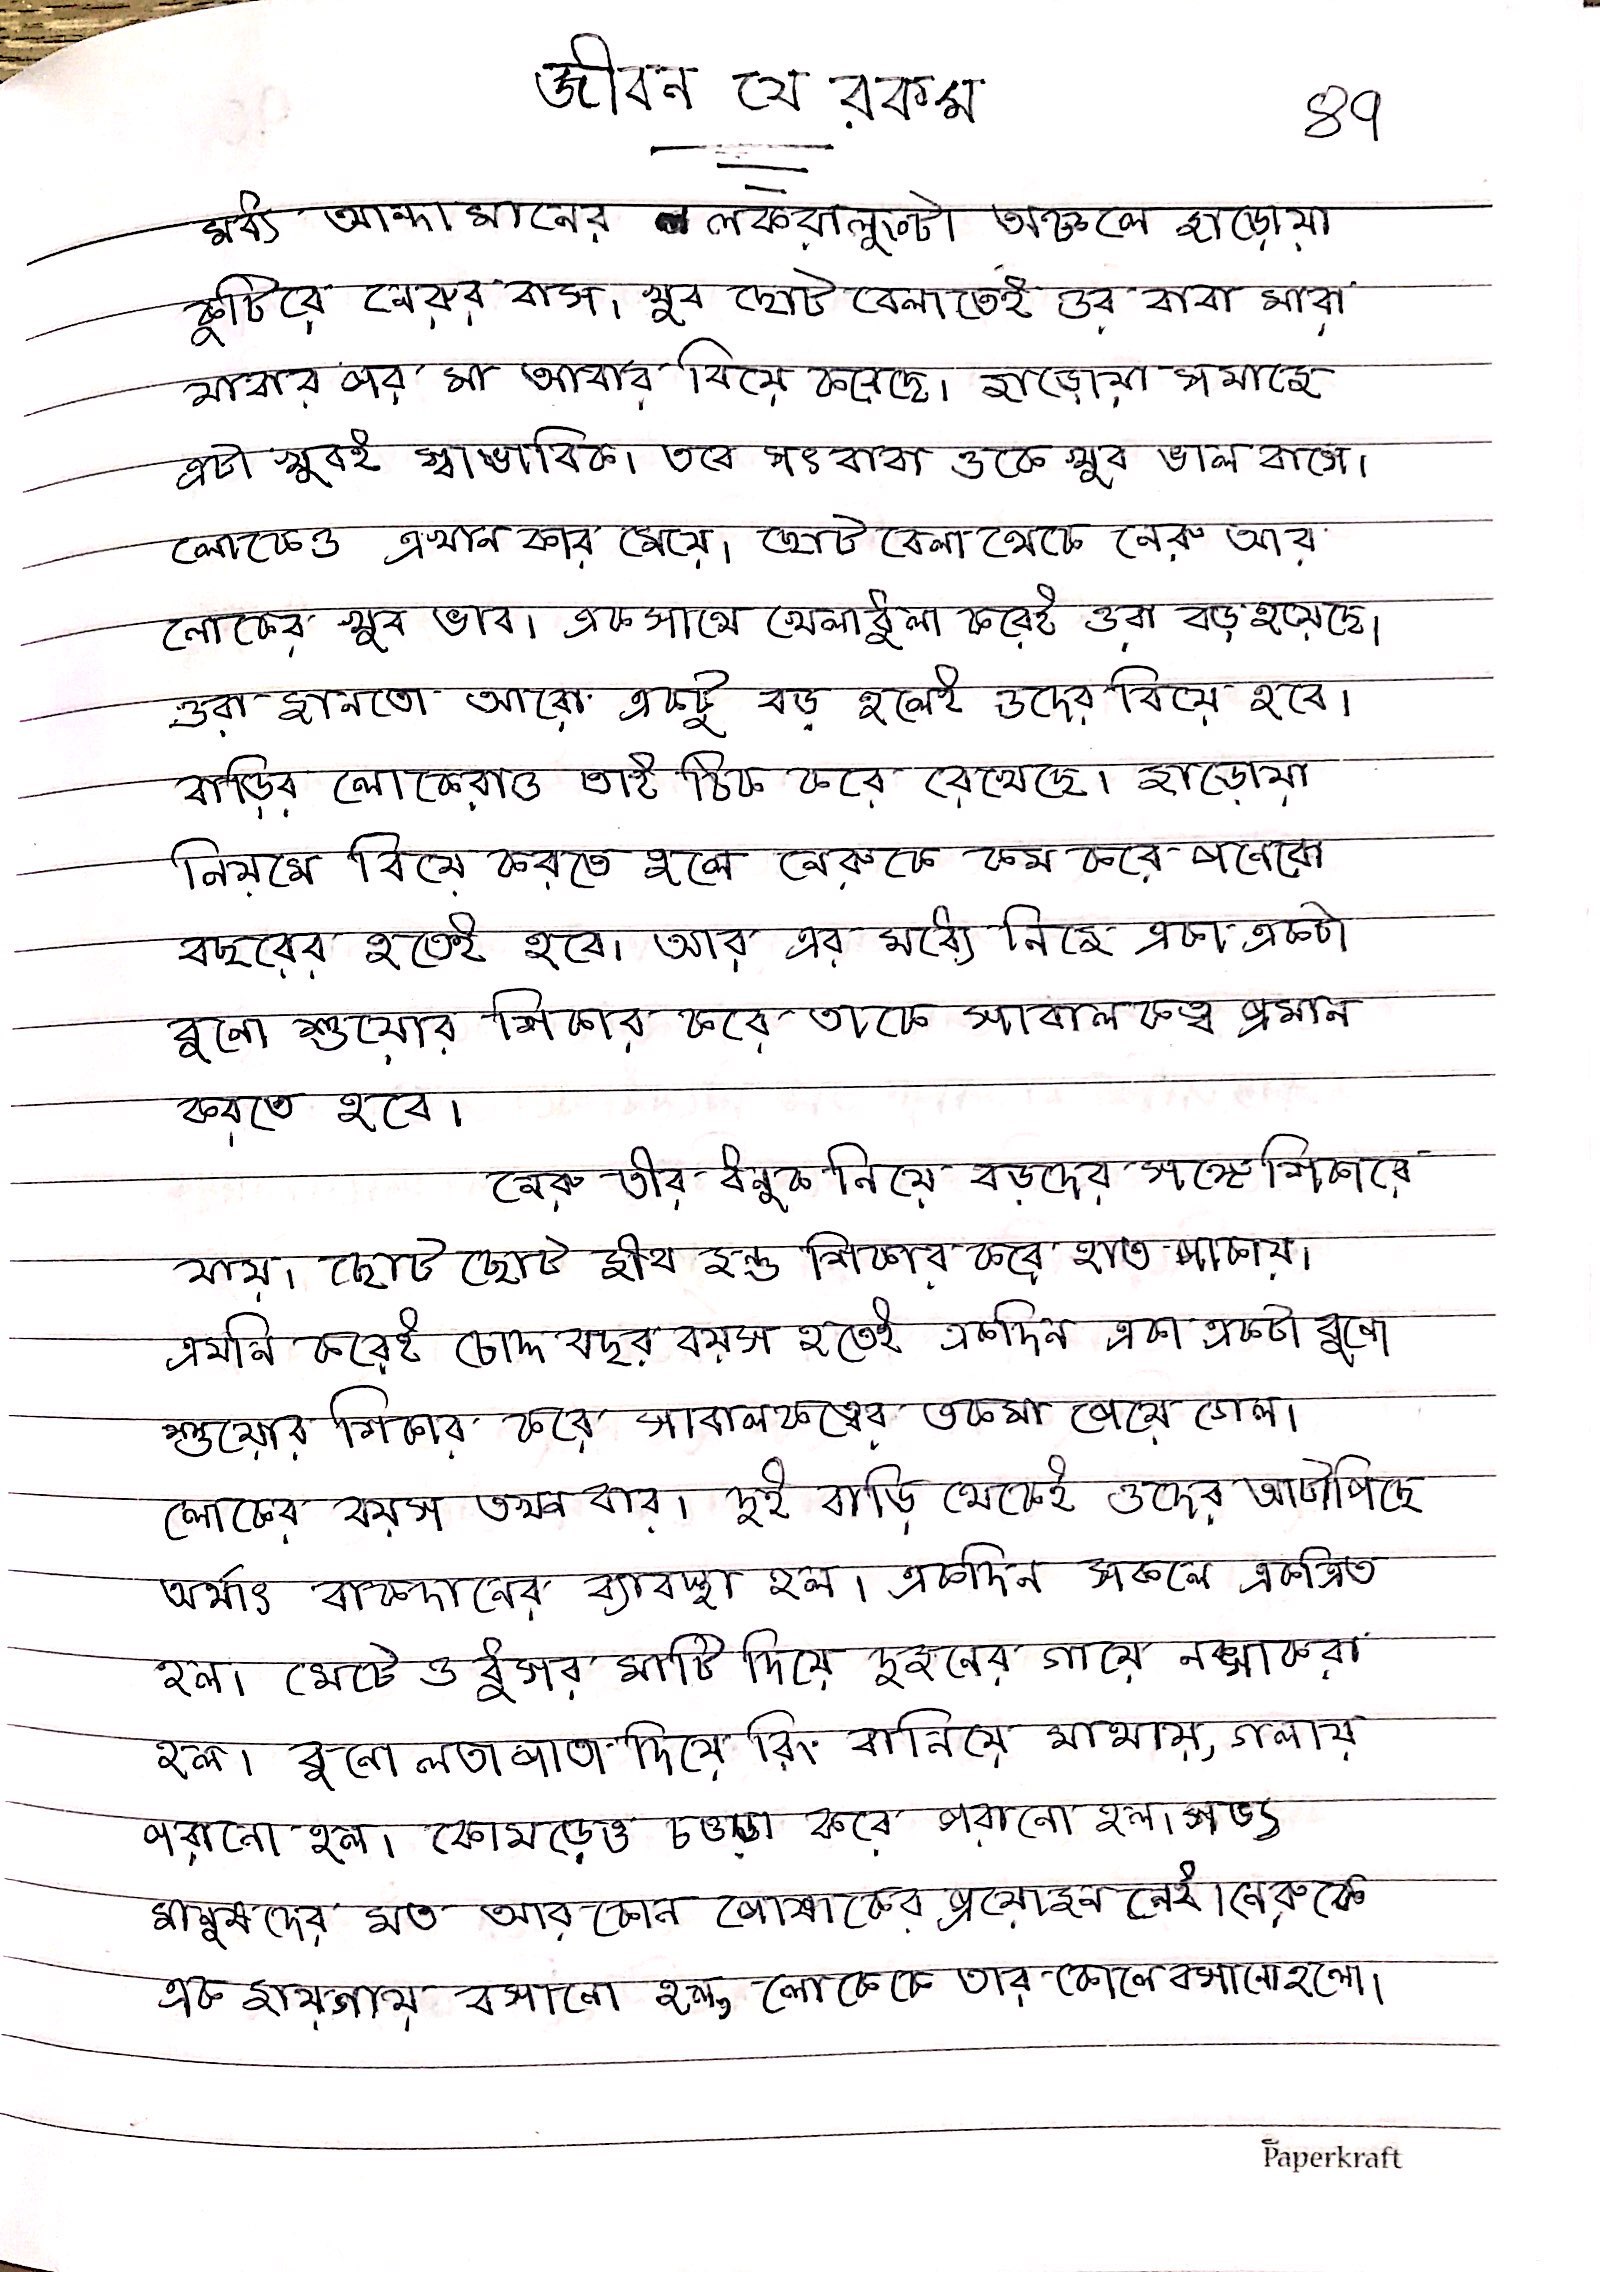 জীবন যে রকম
৪৭
মধ্য আন্দামানের লকরালুনটা অঞ্চলে জাড়োয়া
কুটিরে নেরুর বাস। খুব ছোট বেলাতেই ওর বাবা মারা
যাবার পর মা আবার বিয়ে করেছে। জাড়োয়া সমাজে
এটা খুবই স্বাভাবিক। তবে সৎ বাবা ওকে খুব ভাল বাসে।
লোকেও এখান কার মেয়ে। ছোট বেলা থেকে নেরু আর
লোকের খুব ভাব। একসাথে খেলাধুলা করেই ওরা বড় হয়েছে।
ওরা জানতো আরো একটু বড় হলেই ওদের বিয়ে হবে।
বাড়ির লোকেরাও তাই ঠিক করে রেখেছে। জাড়োয়া
নিয়মে বিয়ে করতে হলে নেরুকে কম করে পনেরো
বছরের হতেই হবে। আর এর মধ্যে নিজে একা একটা
বুনো শুয়োর শিকার করে তাকে সাবালকত্ব প্রমান
করতে হবে।
নেরু তীর ধনুক নিয়ে বড়দের সঙ্গে শিকারে
যায়। ছোট ছোট জীব জন্তু শিকার করে হাত পাকায়।
এমনি করেই চোদ্দ বছর বয়স হতেই একদিন একা একটা বুনো
শুয়োর শিকার করে সাবালকত্বের তকমা পেয়ে গেল।
লোকের বয়স তখন বার। দুই বাড়ি থেকেই ওদের আটাপিছে
অর্থাৎ বাকদানের ব্যাবস্থা হল। একদিন সকলে একত্রিত
হল। মেটে ও ধুসর মাটি দিয়ে দুজনের গায়ে নক্সা করা
হল। বুনো লতা পাতা দিয়ে রিং বানিয়ে মাথায়, গলায়
পরানো হল। কোমড়েও চওড়া করে পরানো হল। সভ্য
মানুষদের মত আর কোন পোষাকের প্রয়োজন নেই। নেরুকে
এক জায়গায় বসানো হল, লোকেকে তার কোলে বসানো হলো।
Paperkraft